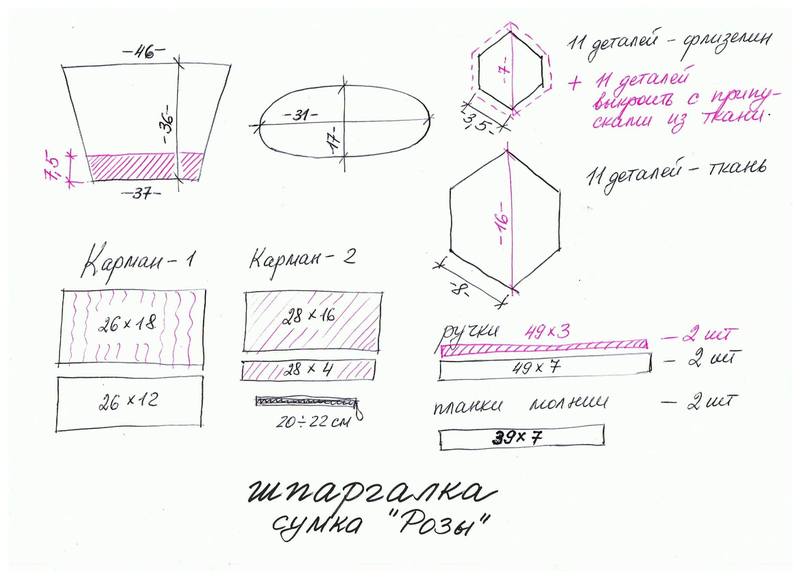 -46-
-36-
7,5
-37-
-31-
-17-
-7-
-3,5-
11 деталей - флизелин
+ 11 деталей
выкроить с припу-
сками из ткани.
-16-
-8-
11 деталей - ткань
Карман - 1
26 × 18
26 × 12
Карман - 2
28 × 16
28 × 4
20÷22 см
ручки 49×3 - 2 шт
49×7 - 2 шт
планки молнии - 2 шт
39×7
шпаргалка
сумка "Розы"